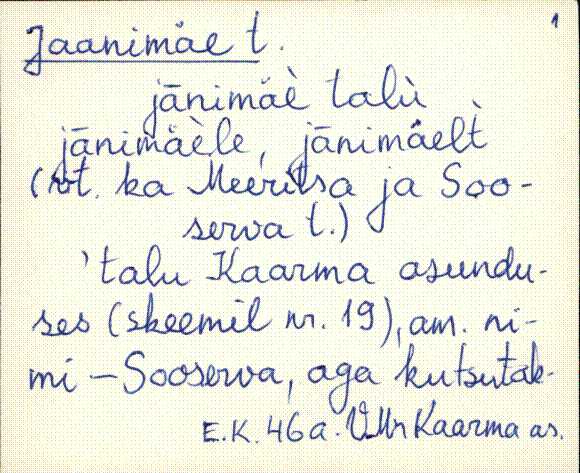 1
Jaanimäe t.
jānimäè talù
jānimäèle, jānimäelt̀
(vt. ka Meeritsa ja Soo-
serva t.)
'talu Kaarma asundu-
ses (skeemil nr. 19), am. ni-
mi – Sooserva, aga kutsutak-
E.K. 46a. VMr Kaarma as.